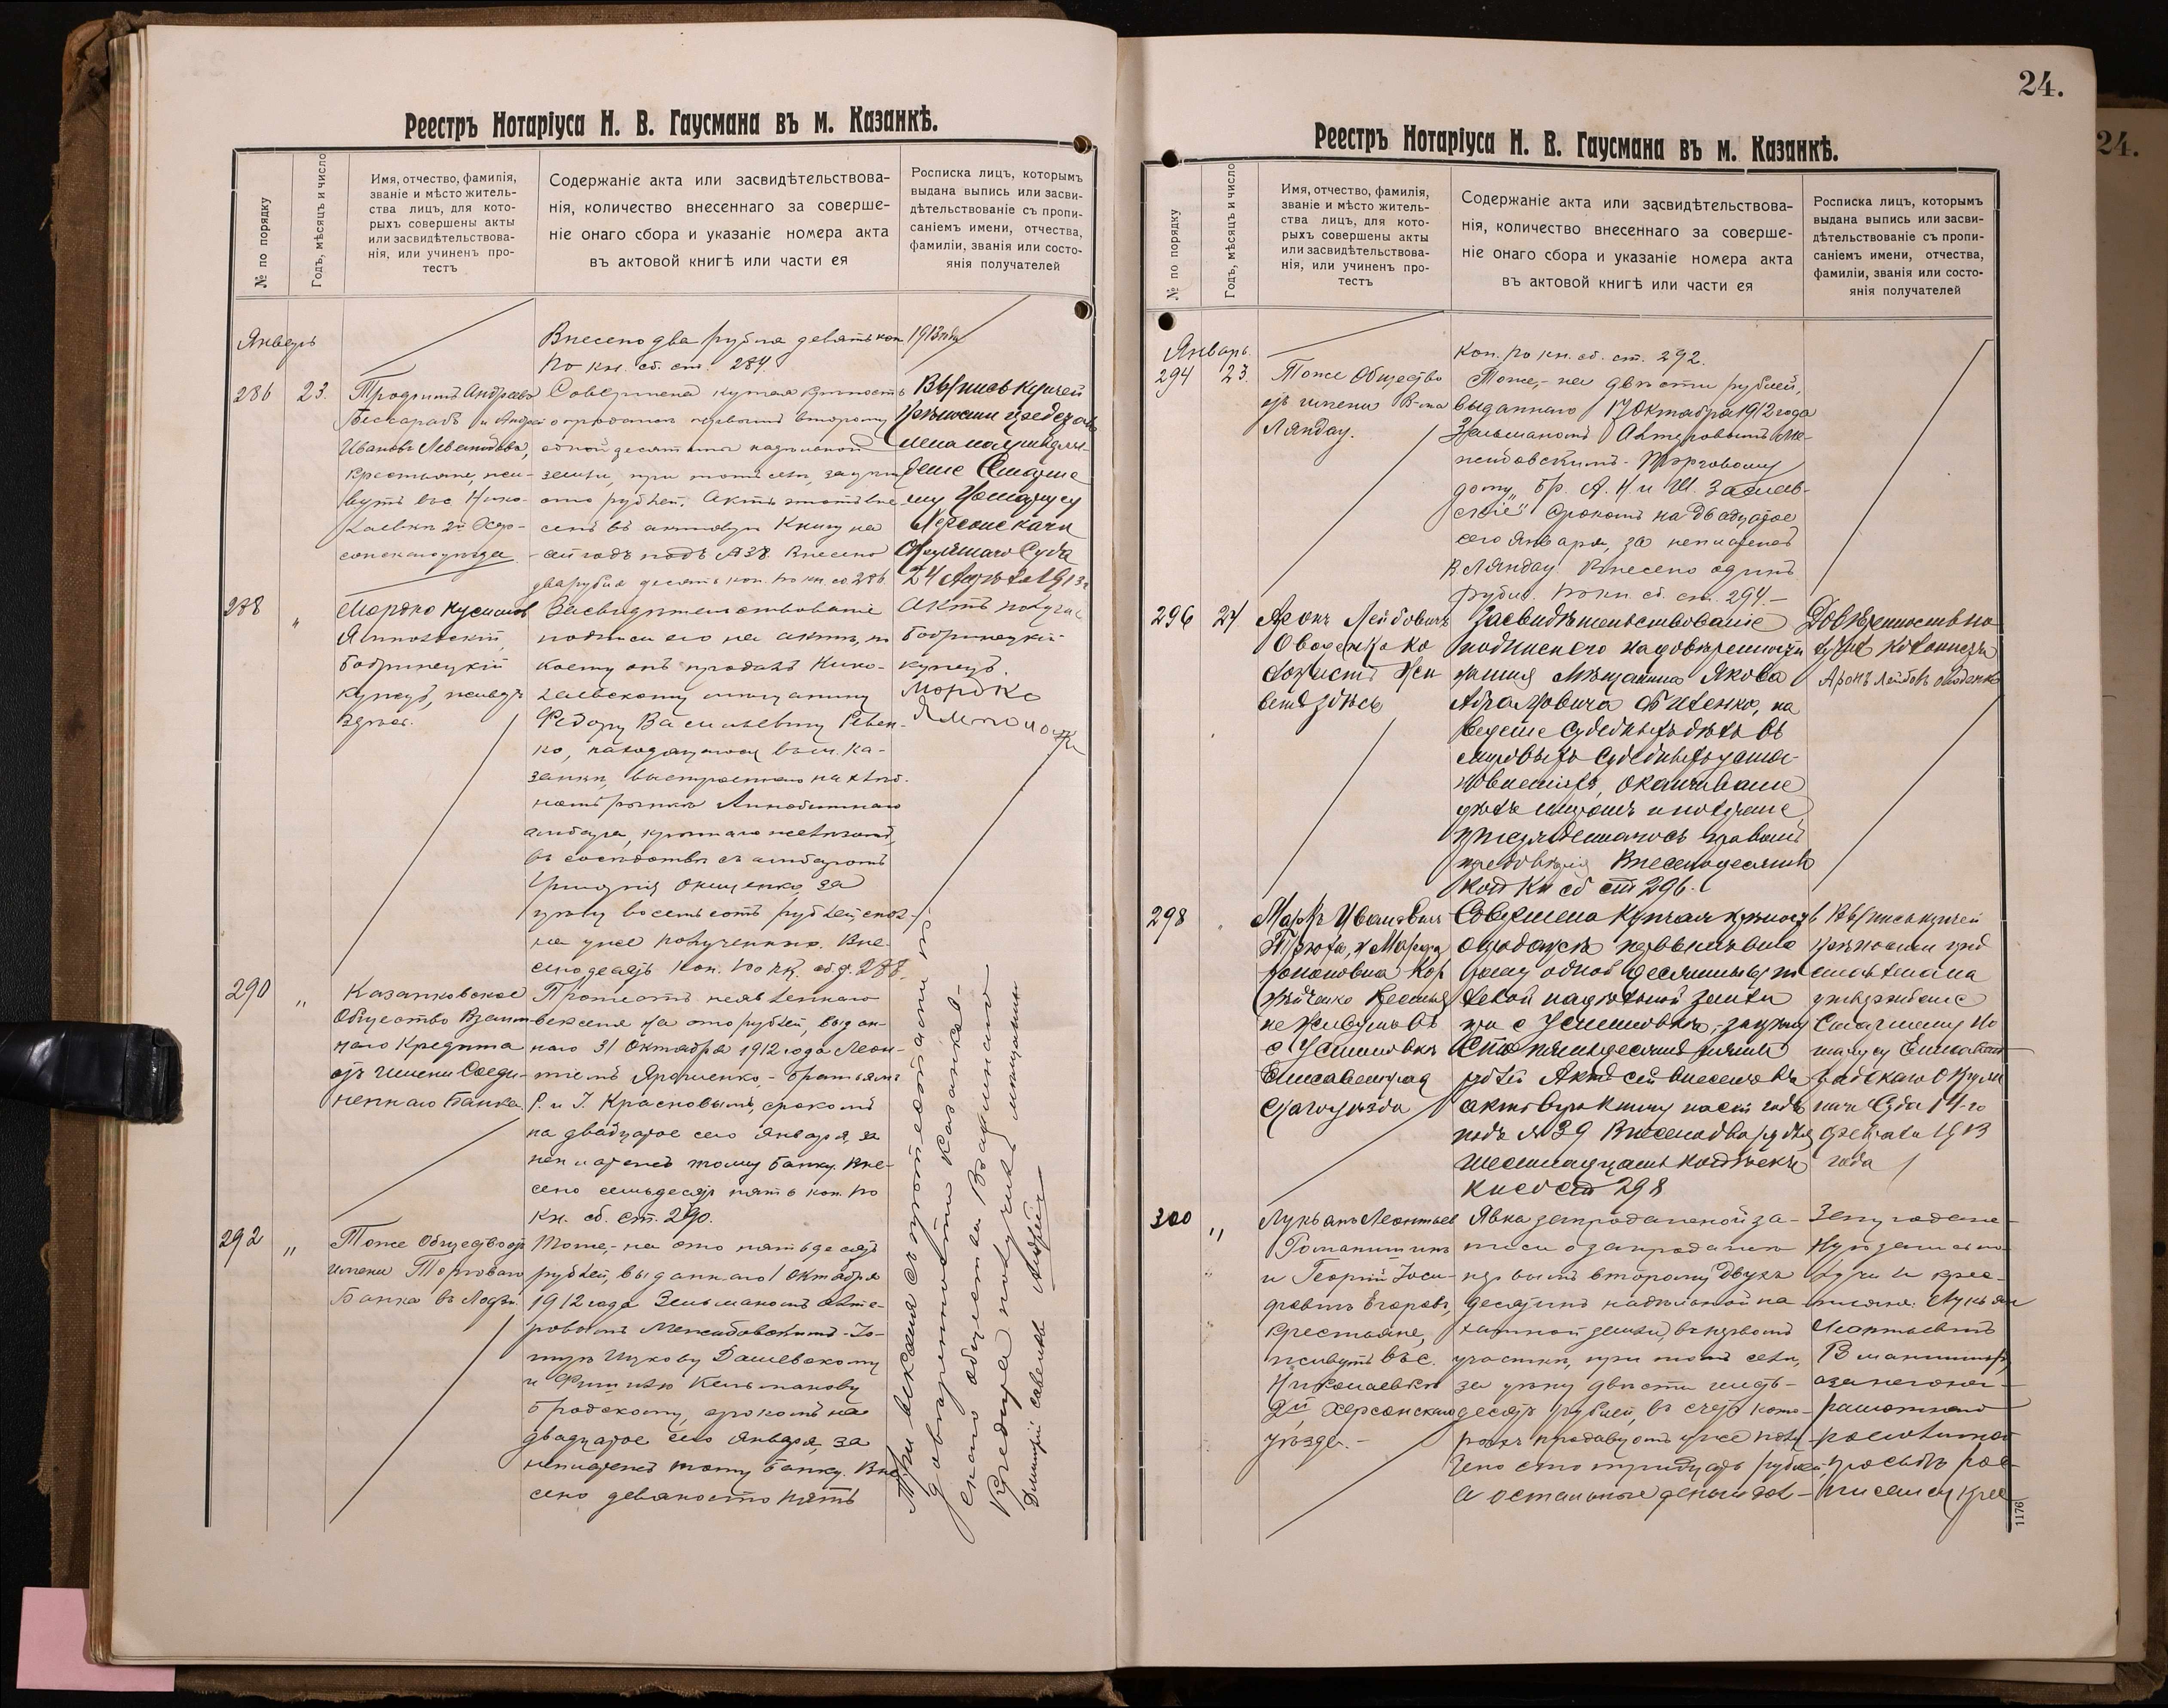 Реестръ Нотаріуса Н. В. Гаусмана въ м. Казанкѣ.
№ по порядку
Годъ, мѣсяцъ и число
Имя, отчество, фамилія,
званіе и мѣсто житель-
ства лицъ, для кото-
рыхъ совершены акты
или засвидѣтельствова-
нія, или учиненъ про-
тестъ
Содержаніе акта или засвидѣтельствова-
нія, количество внесеннаго за соверше-
ніе онаго сбора и указаніе номера акта
въ актовой книгѣ или части ея
Росписка лицъ, которымъ
выдана выпись или засви-
дѣтельствованіе съ пропи-
саніемъ имени, отчества,
фамиліи, званія или состо-
янія получателей
Январь
Внесено два рубля девять коп.
по кн. сб. ст. 284
1913 года
286
23.
Андреевъ
Бескарабъ и Андрей
Ивановъ
крестьяне, жи-
вутъ въ с. Нико-
лаевкѣ 2й Хер-
сонскаго уѣзда.
Совершена купчая крѣпость
о продажѣ первымъ второму
одной десятины надѣльной
земли, при томъ селѣ, за цѣну
сто рублей. Актъ этотъ вне-
сенъ въ актовую книгу на
сей годъ подъ №38. Внесено
два рубля десять коп. по кн. сб. 286.
Выпись купчей
крѣпости
Старше-
му Нотаріусу
Херсонскаго
Окружнаго Суда
24 1913 г.
288
"
Мордко
Ямпольскій,
Бобринецкій
купецъ, живетъ
здѣсь.
Засвидѣтельствованіе
подписи его на актѣ, по
коему онъ продалъ Нико-
лаевскому мѣщанину
Федору Васильевичу Ревен-
ко, находящагося въ м. Ка-
занкѣ, выстроеннаго на хлѣб-
номъ рынкѣ
амбара, крытаго желѣзомъ,
въ сосѣдствѣ съ амбаромъ
Григорія Онищенко, за
цѣну восемьсотъ рублей
уже полученныхъ. Вне-
сено десять коп. по кн. сб. ст. 288.
Актъ получилъ
Бобринецкій
купецъ
Мордко
Ямпольскій
290
"
Казанковское
Общество Взаим-
наго Кредита
отъ имени Соеди-
неннаго Банка.
Протестъ неявленнаго
векселя на сто рублей, выдан-
наго 31 Октября 1912 года Леон-
тіемъ Ярошенко,- братьямъ
Р. и І. Красновымъ, срокомъ
на двадцатое сего Января, за
неплатежъ тому банку. Вне-
сено семьдесятъ пять коп. по
кн. сб. ст. 290.
292
"
Тоже Общество отъ
имени Торговаго
Банка въ Лодзи.
Тоже,- на сто пятьдесятъ
рублей, выданнаго 1 Октября
1912 года Зельманомъ Авте-
ровымъ Межибовскимъ
Дашевскому
и Кельманову
Бродскому, срокомъ на
двадцатое сего Января, за
неплатежъ тому банку. Вне-
сено девяносто пять
Три векселя съ протестами по
довѣренности Казанков-
скаго общества Взаимнаго
Кредита получилъ мѣщанинъ
Димитрій Савельевъ
24.
24.
Реестръ Нотаріуса Н. В. Гаусмана въ м. Казанкѣ.
№ по порядку
Годъ, мѣсяцъ и число
Имя, отчество, фамилія,
званіе и мѣсто житель-
ства лицъ, для кото-
рыхъ совершены акты
или засвидѣтельствова-
нія, или учиненъ про-
тестъ
Содержаніе акта или засвидѣтельствова-
нія, количество внесеннаго за соверше-
ніе онаго сбора и указаніе номера акта
въ актовой книгѣ или части ея
Росписка лицъ, которымъ
выдана выпись или засви-
дѣтельствованіе съ пропи-
саніемъ имени, отчества,
фамиліи, званія или состо-
янія получателей
Январь.
коп. по кн. сб. ст. 292.
294
23.
Тоже Общество
отъ имени В-ма
Ляндау.
Тоже,- на двѣсти рублей,
выданнаго 17 Октября 1912 года
Зельманомъ Автеровымъ Ме-
жибовскимъ - Торговому
дому „Бр. А. Н и Ш. Заслав-
скіе" срокомъ на двадцатое
сего Января, за неплатежъ
В. Ляндау. Внесено одинъ
рубль. по кн. сб. ст. 294.-
296
24
Аронъ Лейбовичъ
Ободенко ко-
лонистъ жи-
ветъ здѣсь
Засвидѣтельствованіе
подписи его на довѣренности
на имя мѣщанина Якова
Абрамовича
веденіе судебныхъ дѣлъ въ
мировыхъ судебныхъ уста-
новленіяхъ, окончаніе
дѣлъ миромъ и полученіе
присужденнаго съ правомъ
передовѣрія Внесено десять
коп Кн сб ст 296.
Довѣренность по-
лучилъ колонистъ
Аронъ Лейбовъ Ободенко
298
"
Маркъ Ивановичъ
и Марфа
крестья-
не живутъ въ
с Устиновкѣ
Елисаветград
скаго уѣзда
Совершена Купчая крѣпость
о продажѣ первымъ вто
рому одной десятины
надѣльной земли
при с Устиновкѣ, за цѣну
сто пятьдесятъ пять
рублей Актъ сей внесенъ въ
актовую книгу на сей годъ
подъ №39 Внесено два рубля
шестнадцать копѣекъ
Кн сб ст 298
Выпись купчей
крѣпости
на
утвержденіе
Старшему Но
таріусу Елисавет
градскаго Окруж
наго Суда 14-го
февраля 1913
года
300
"
Лукьянъ Леонтьев
и Георгій Іоси-
фовичъ Егоровъ,
крестьяне,
живутъ въ с.
Николаевкѣ
2й, Херсонскаго
уѣзда.-
Явка запродажной за-
писи о запродажѣ
первымъ второму двухъ
десятинъ надѣльной па-
хатной земли, въ первомъ
участкѣ, при томъ селѣ,
за цѣну двѣсти шесть-
десятъ рублей, въ счетъ кото-
рыхъ продавцомъ уже полу-
чено сто тридцать рублей,
а остальныя деньги
Запродаж-
ную запись по-
лучили крес-
тьяне: Лукьян
Леонтьевичъ
а за неграмот-
просьбѣ рос-
писался крес
1176